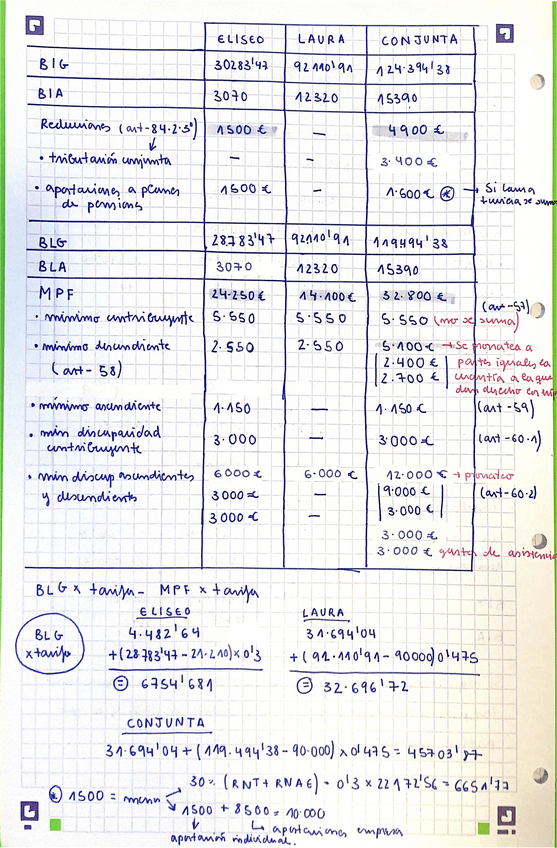 ELISEO LAURA CONJUNTA
BIG 30283'47 92110'91 124.394'38
BIA 3070 12320 15390
Reducciones (art-84.2.3º) 1500 € — 4900 €
• tributación conjunta — — 3.400 €
• aportaciones a planes de pensiones 1500 € — 1.500 € * → Si Laura
BLG 28.783'47 92110'91 119494'38
BLA 3070 12320 15390
MPF 24.250 € 14.100 € 32.800 €
(art-57)
• mínimo contribuyente 5.550 5.550 5.550 (no se suma)
• mínimo descendiente 2.550 2.550 5.100 € → Se prorratea a
(art-58) 2.400 € partes iguales
2.700 €
• mínimo ascendiente 1.150 — 1.150 € (art-59)
• min discapacidad contribuyente 3.000 — 3.000 € (art-60.1)
• min discap ascendientes 6000 € 6.000 € 12.000 € → prorrateo
y descendientes 3000 € — 9.000 € (art-60.2)
3000 € — 3.000 €
3.000 €
3.000 € gastos de asistencia
BLG x tarifa - MPF x tarifa
ELISEO LAURA
BLG x tarifa
4.482'64 31.694'04
+(28.783'47-21.210)x0'3 +(92.110'91-90000)0'475
= 6754'681 = 32.696'72
CONJUNTA
31.694'04 + (119.494'38-90.000) x0'475 = 45703'87
30% (RNT+RNAE) = 0'3 x 22172'56 = 6651'77
* 1500 = menor
1500 + 8500 = 10.000
aportaciones empresa
aportación individual.